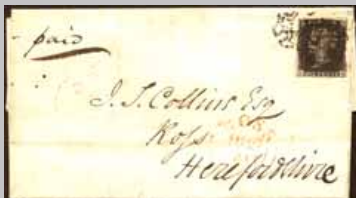 paid
J. J. Collins Esq
Ross
Herefordshire